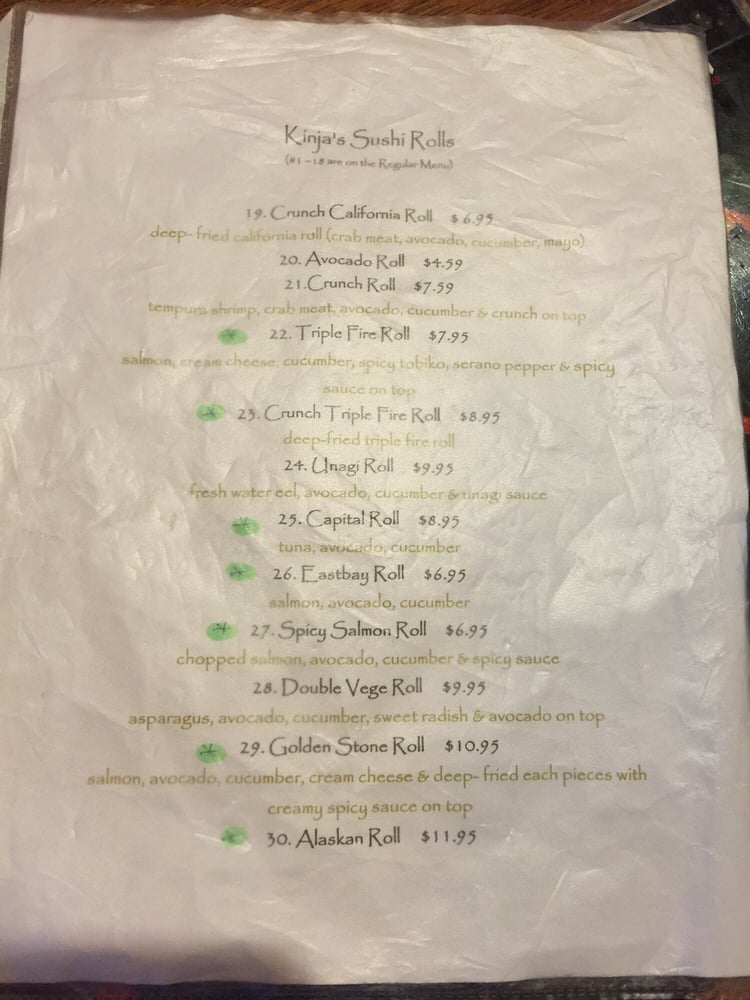 Kinja's Sushi Rolls
(#1 - 18 are on the Regular Menu)
19. Crunch California Roll $ 6.95
deep-fried california roll (crab meat, avocado, cucumber, mayo)
20. Avocado Roll $4.59
21.Crunch Roll $7.59
tempura shrimp, crab meat, avocado, cucumber & crunch on top
* 22. Triple Fire Roll $7.95
salmon, cream cheese, cucumber, spicy tobiko, serano pepper & spicy
sauce on top
* 23. Crunch Triple Fire Roll $8.95
deep-fried triple fire roll
24. Unagi Roll $9.95
fresh water eel, avocado, cucumber & unagi sauce
* 25. Capital Roll $8.95
tuna, avocado, cucumber
* 26. Eastbay Roll $6.95
salmon, avocado, cucumber
* 27. Spicy Salmon Roll $6.95
chopped salmon, avocado, cucumber & spicy sauce
28. Double Vege Roll $9.95
asparagus, avocado, cucumber, sweet radish & avocado on top
* 29. Golden Stone Roll $10.95
salmon, avocado, cucumber, cream cheese & deep- fried each pieces with
creamy spicy sauce on top
* 30. Alaskan Roll $11.95